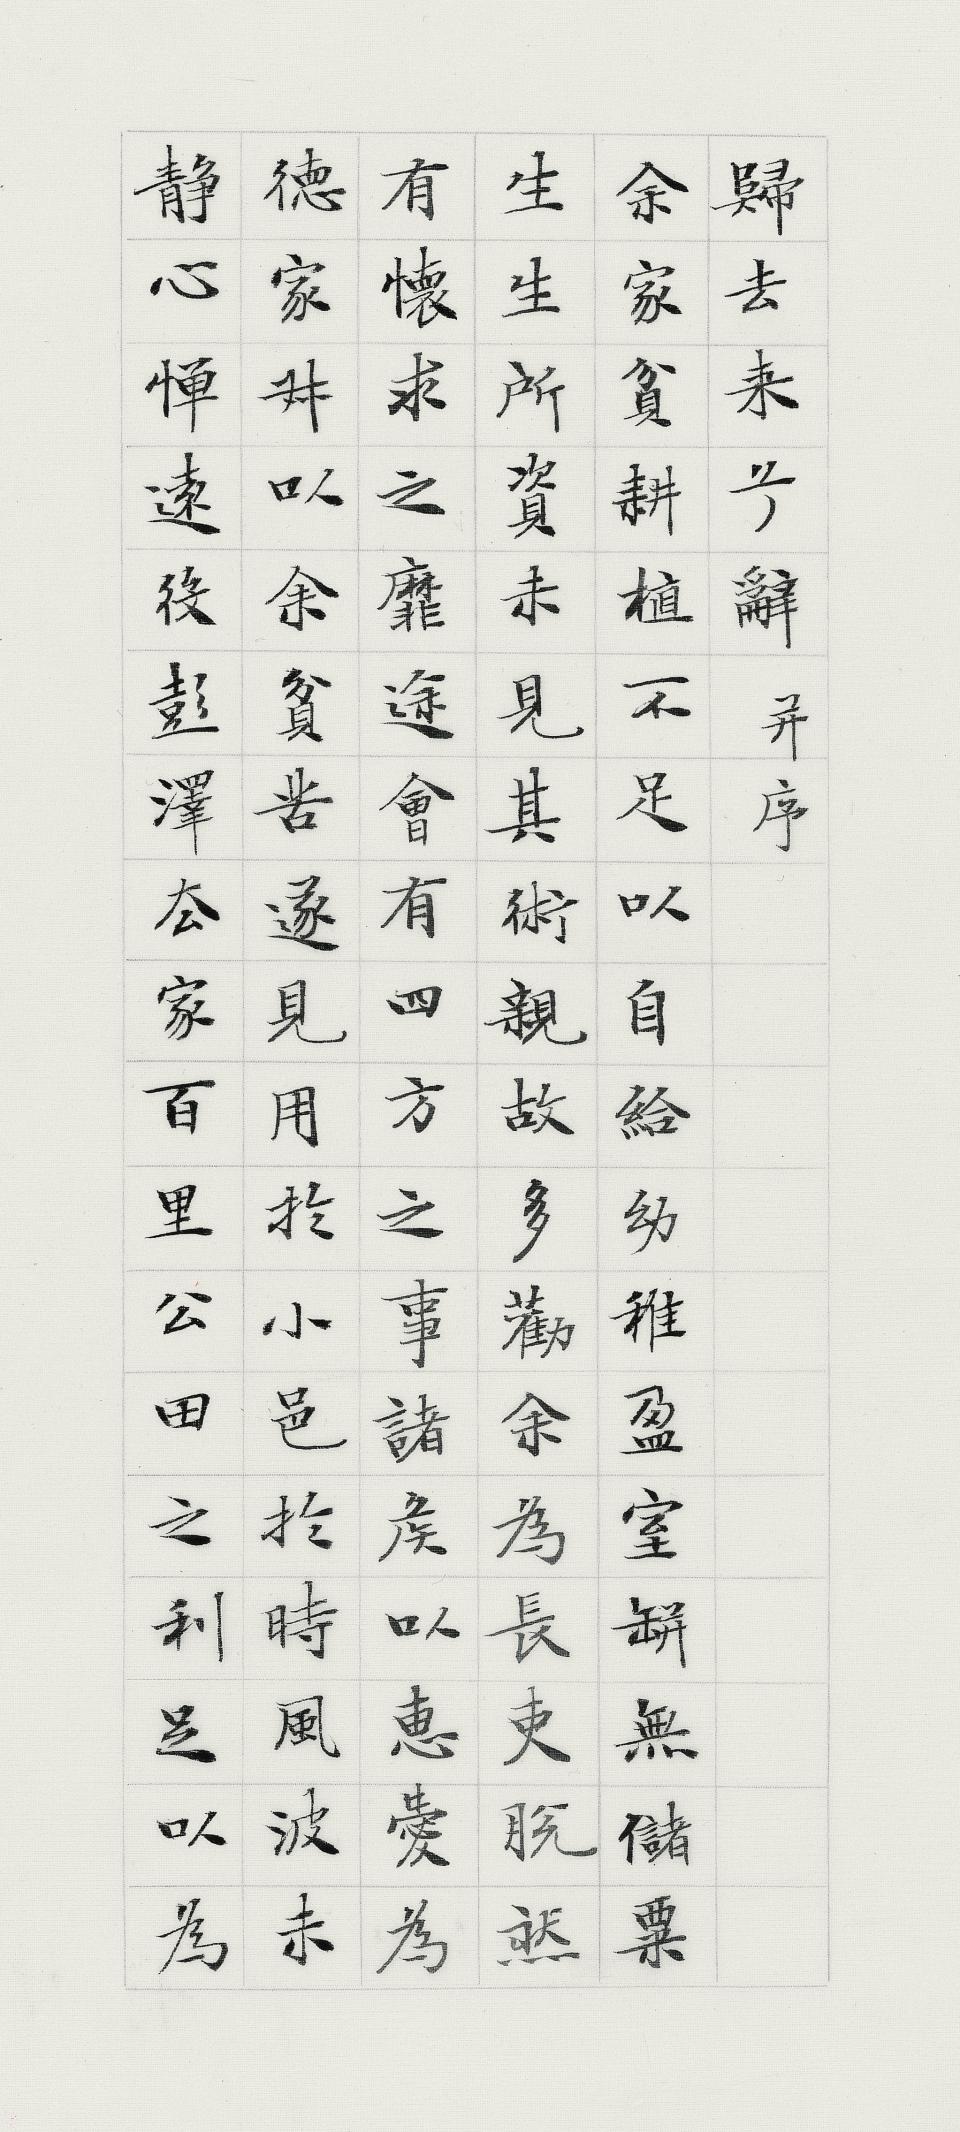 歸去来兮辭并序
余家貧耕植不足以自給幼稚盈室缾無儲粟
生生所資未見其術親故多勸余為長吏脫然
有懷求之靡途會有四方之事諸侯以惠愛為
德家叔以余貧苦遂見用於小邑於時風波未
静心惮遠役彭澤去家百里公田之利足以為